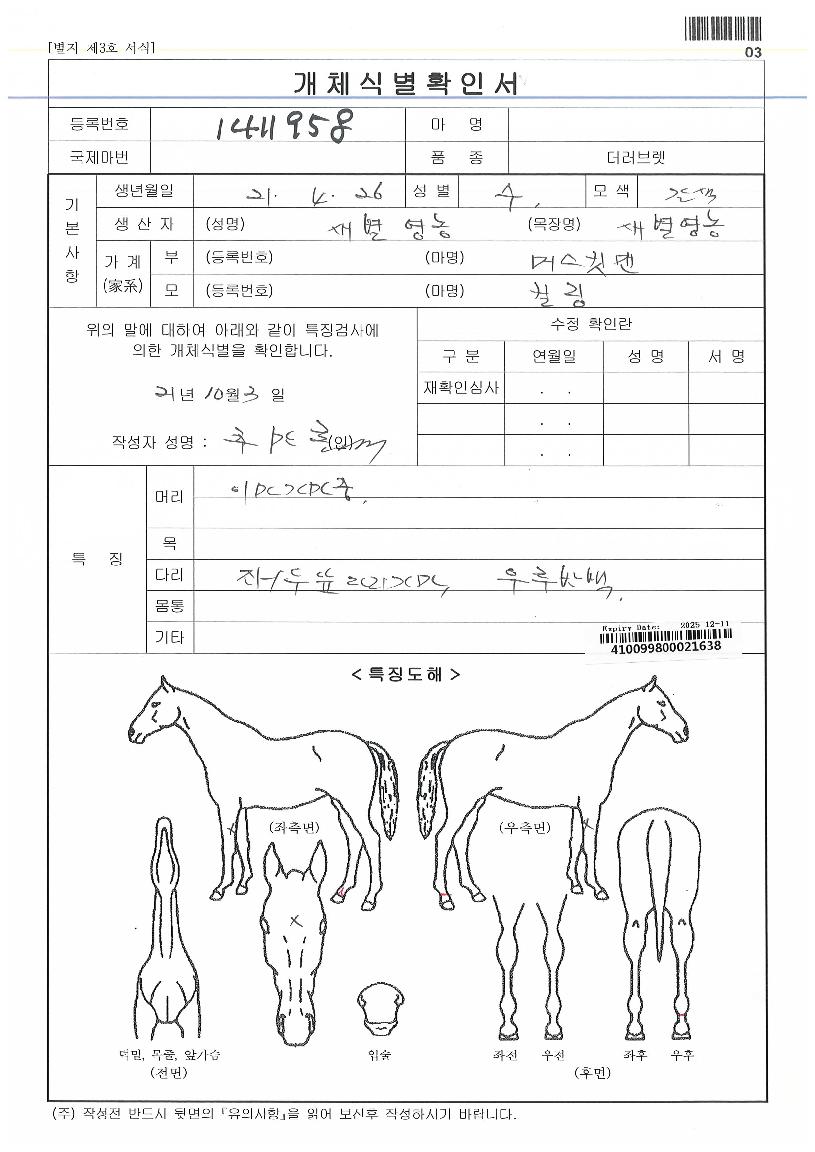 [별지 제3호 서식]
03
개체식별확인서
등록번호 1411958 마 명
국제마번 품 종 더러브렛
기본사항
생년월일 21. 4. 26 성 별 수. 모 색
생 산 자 (성명) 새별 영농 (목장명) 새별영농
가 계 (家系) 부 (등록번호) (마명) 머스킷맨
모 (등록번호) (마명) 칠링
위의 말에 대하여 아래와 같이 특징검사에
의한 개체식별을 확인합니다.
21년 10월 3일
작성자 성명 : (인)
수정 확인란
구 분 연월일 성 명 서 명
재확인심사 . .
. .
. .
특 징
머리
목
다리
몸통
기타
Expiry Date: 2025-12-11
410099800021638
< 특징도해 >
(좌측면) (우측면)
턱밑, 목줄, 앞가슴 입술 좌전 우전 좌후 우후
(전면) (후면)
(주) 작성전 반드시 뒷면의 『유의사항』을 읽어 보신후 작성하시기 바랍니다.